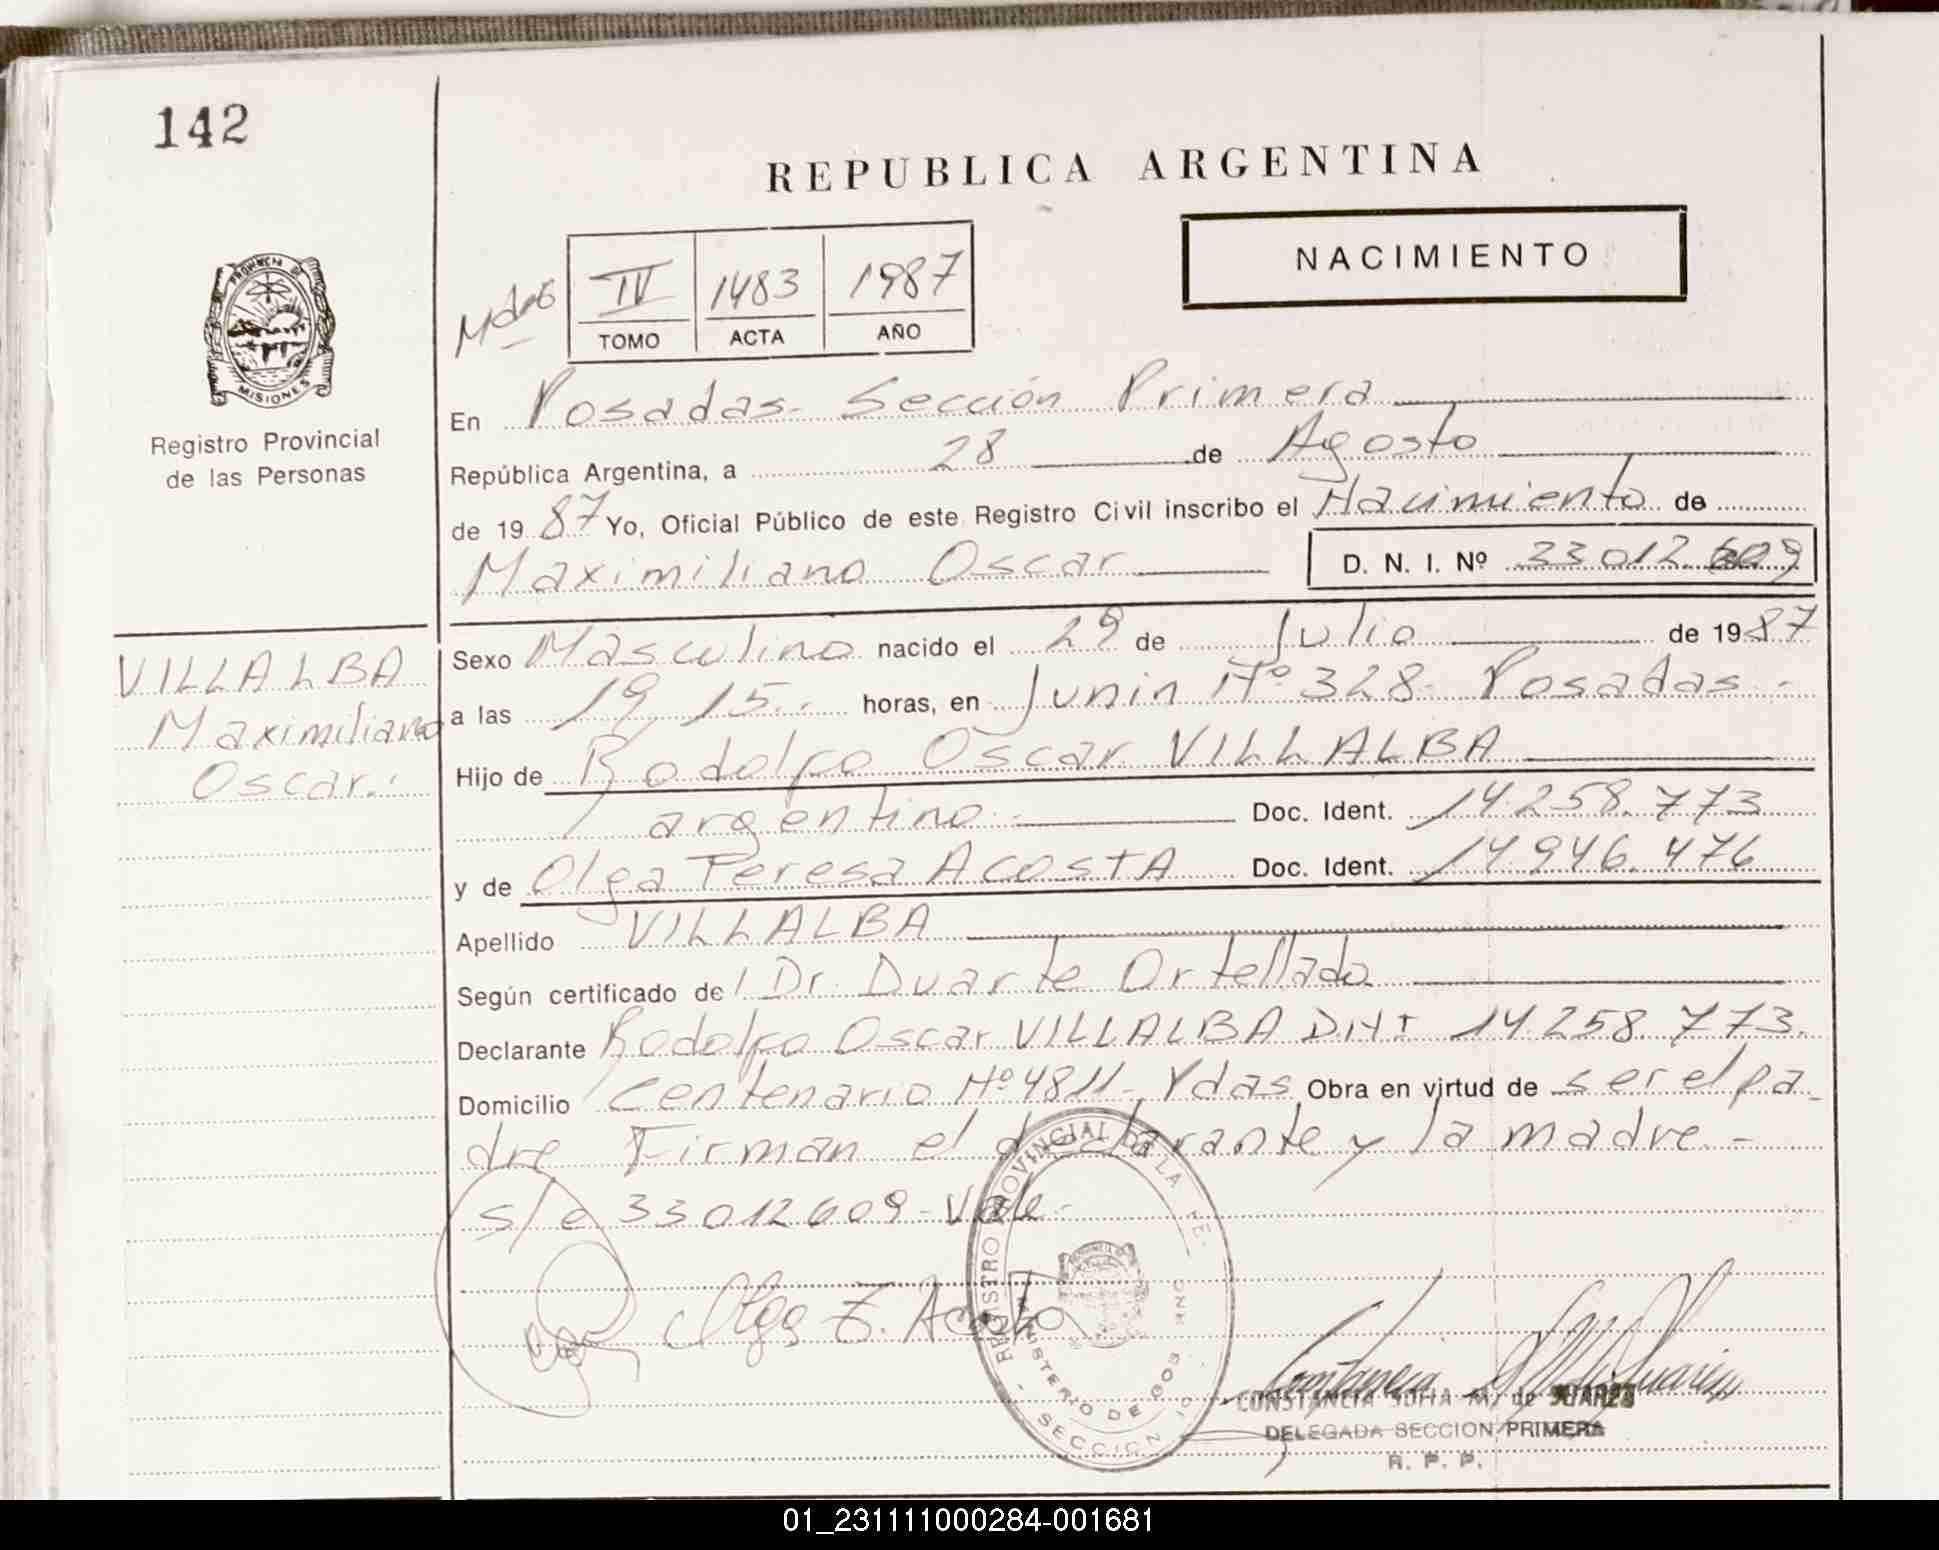 142
REPUBLICA ARGENTINA
NACIMIENTO
IV 1483 1987
TOMO ACTA AÑO
PROVINCIA DE
MISIONES
Registro Provincial
de las Personas
En Posadas - Sección Primera
República Argentina, a 28 de Agosto
de 1987 Yo, Oficial Público de este Registro Civil inscribo el Nacimiento de
Maximiliano Oscar D. N. I. Nº 33.012.609
VILLALBA
Maximiliano
Oscar.
Sexo Masculino nacido el 29 de Julio de 1987
a las 19,15.. horas, en Junin Nº 328 - Posadas -
Hijo de Rodolfo Oscar VILLALBA
argentino - Doc. Ident. 14.258.773
y de Olga Teresa ACOSTA Doc. Ident. 14.946.476
Apellido VILLALBA
Según certificado de Dr. Duarte Ortellado
Declarante Rodolfo Oscar VILLALBA D.N.I 14.258.773.
Domicilio Centenario Nº 4811 - Pdas Obra en virtud de ser el pa_
dre Firman el declarante y la madre -
s/e 33012609 - Vale -
Olga T. Acosta
REGISTRO PROVINCIAL DE LA
MINISTERIO DE GOB
SECCION
CONSTANCIA SOFIA M. de SUAREZ
DELEGADA SECCION PRIMERA
R. P. P.
01_231111000284-001681